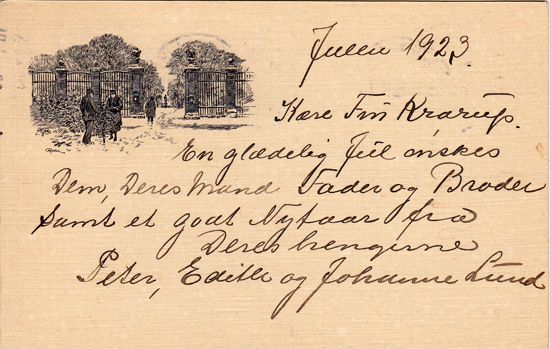 Julen 1923.
Kære Fru Krarup.
En glædelig Jul ønskes
Dem, Deres Mand Fader og Broder
samt et godt Nytaar fra
Deres hengivne
Peter, Edith og Johanne Lund